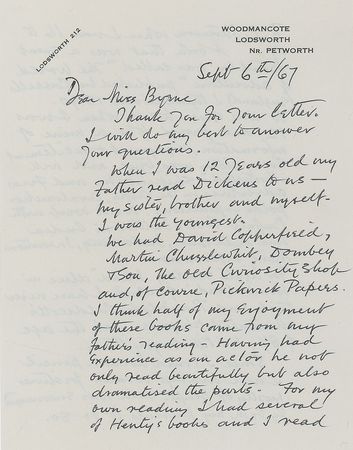 LODSWORTH 212
WOODMANCOTE
LODSWORTH
NR. PETWORTH
Sept 6th/67
Dear Miss Byrne
Thank you for your letter.
I will do my best to answer
your questions.
When I was 12 years old my
Father read Dickens to us —
my sister, brother and myself.
I was the youngest.
We had David Copperfield,
Martin Chuzzlewhit, Dombey
& Son, the old Curiosity Shop
and, of course, Pickwick Papers.
I think half of my enjoyment
of these books came from my
Father's reading — Having had
experience as an actor he not
only read beautifully but also
dramatised the parts. For my
own reading I had several
of Henty's books and I read